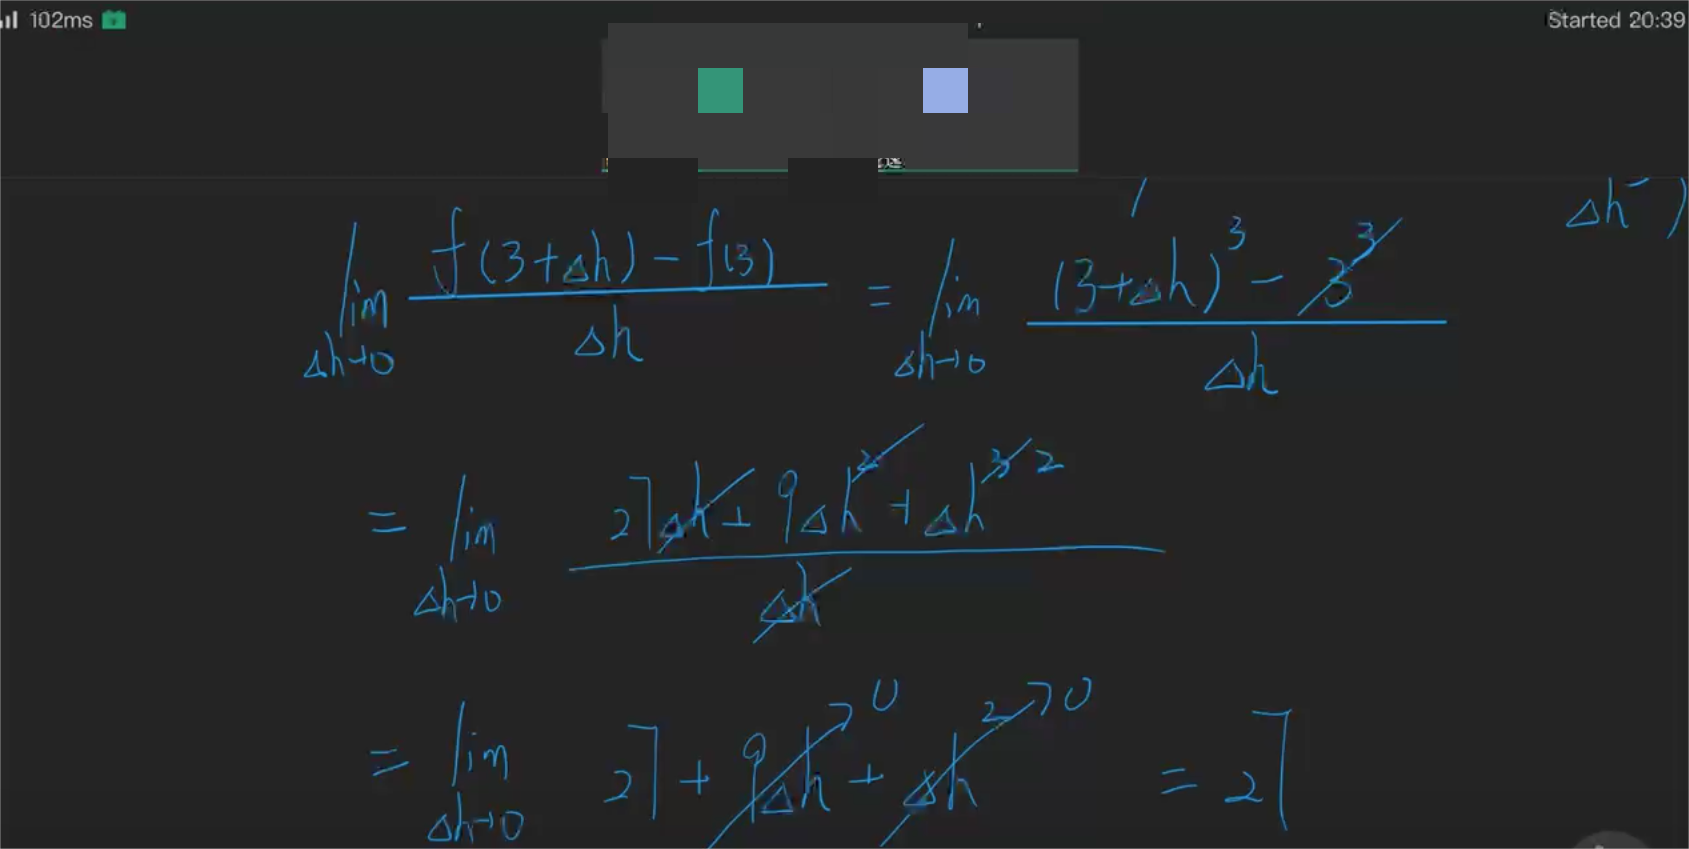 102ms
Started 20:39
Δh )
lim Δh→0 f(3+Δh) − f(3) / Δh = lim Δh→0 (3+Δh)³ − 3³ / Δh
= lim Δh→0 27Δh + 9Δh² + Δh³ 2 / Δh
= lim Δh→0 27 + 9Δh →0 + Δh² →0 = 27